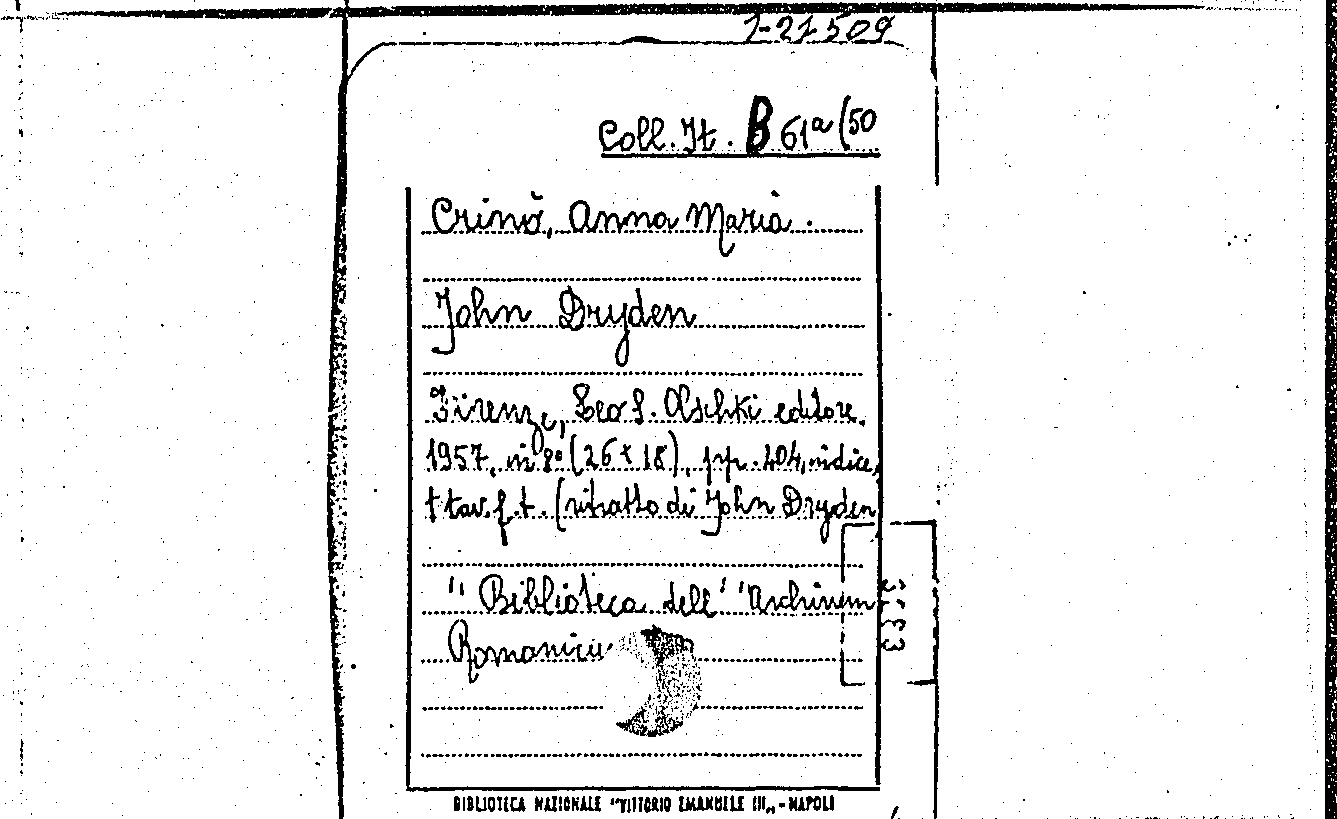 1-21509
Coll. It. B 61a (50
Crinò, Anna Maria.
John Dryden
Firenze, Leo S. Olschki editore,
1957, in 8° (26 x 18), pp. 404, indice,
1 tav. f. t. (ritratto di John Dryden
"Biblioteca dell' "Archivum
Romanicu
BIBLIOTECA NAZIONALE "VITTORIO EMANUELE III„ - NAPOLI